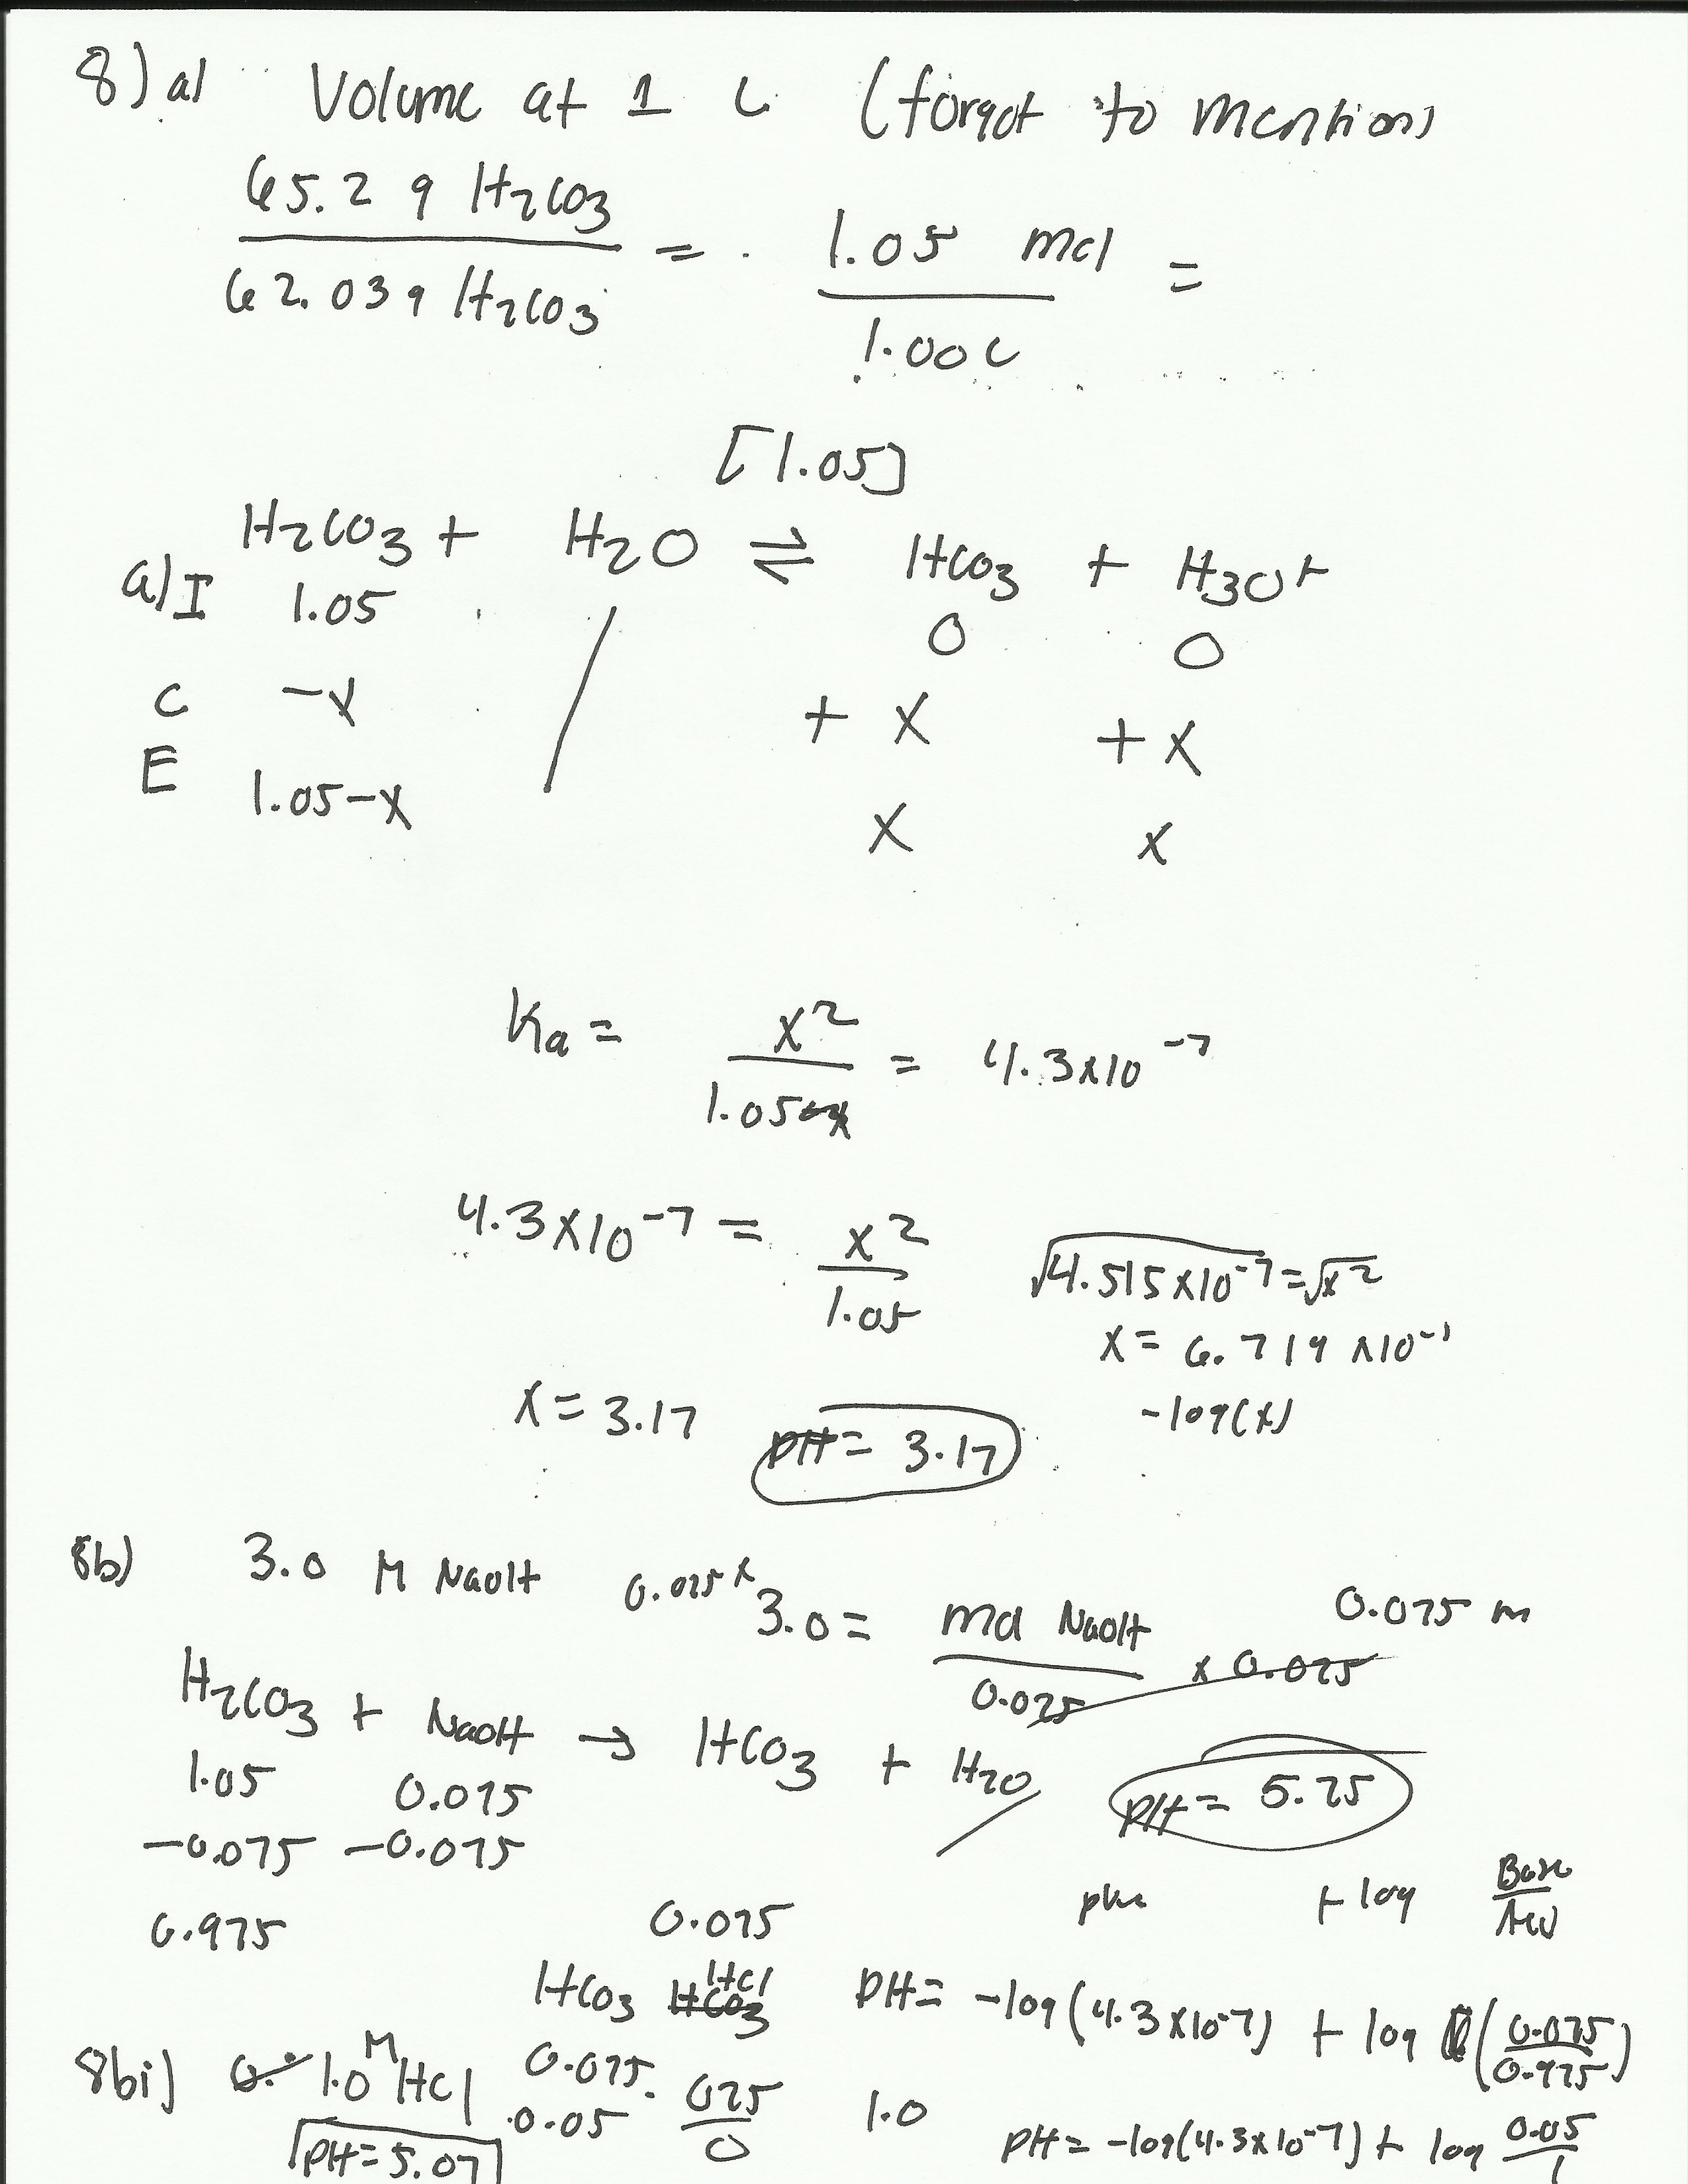 8) a) Volume at 1 L (forgot to mention)
65.2 g H2CO3 / 62.03 g H2CO3 = 1.05 mol / 1.00 L =
[1.05]
H2CO3 + H2O ⇌ HCO3 + H3O+
a) I 1.05 0 0
C -x + x + x
E 1.05-x x x
Ka = x² / 1.05-x = 4.3x10^-7
4.3x10^-7 = x² / 1.05 √4.515x10^-7 = √x²
x = 6.719 x10^-1
x = 3.17 pH = 3.17 -log(x)
8b) 3.0 M NaOH 0.025 x 3.0 = mol NaOH / 0.025 x 0.025 0.075 m
H2CO3 + NaOH → HCO3 + H2O pH = 5.25
1.05 0.075
-0.075 -0.075
pka + log Base / Acid
0.975 0.075
HCO3 HCO3 HCl pH = -log(4.3x10^-7) + log (0.075 / 0.975)
8bi) 0. 1.0 M HCl 0.075 025 1.0
0.05 0
pH = 5.07 pH = -log(4.3x10^-7) + log 0.05 / 1